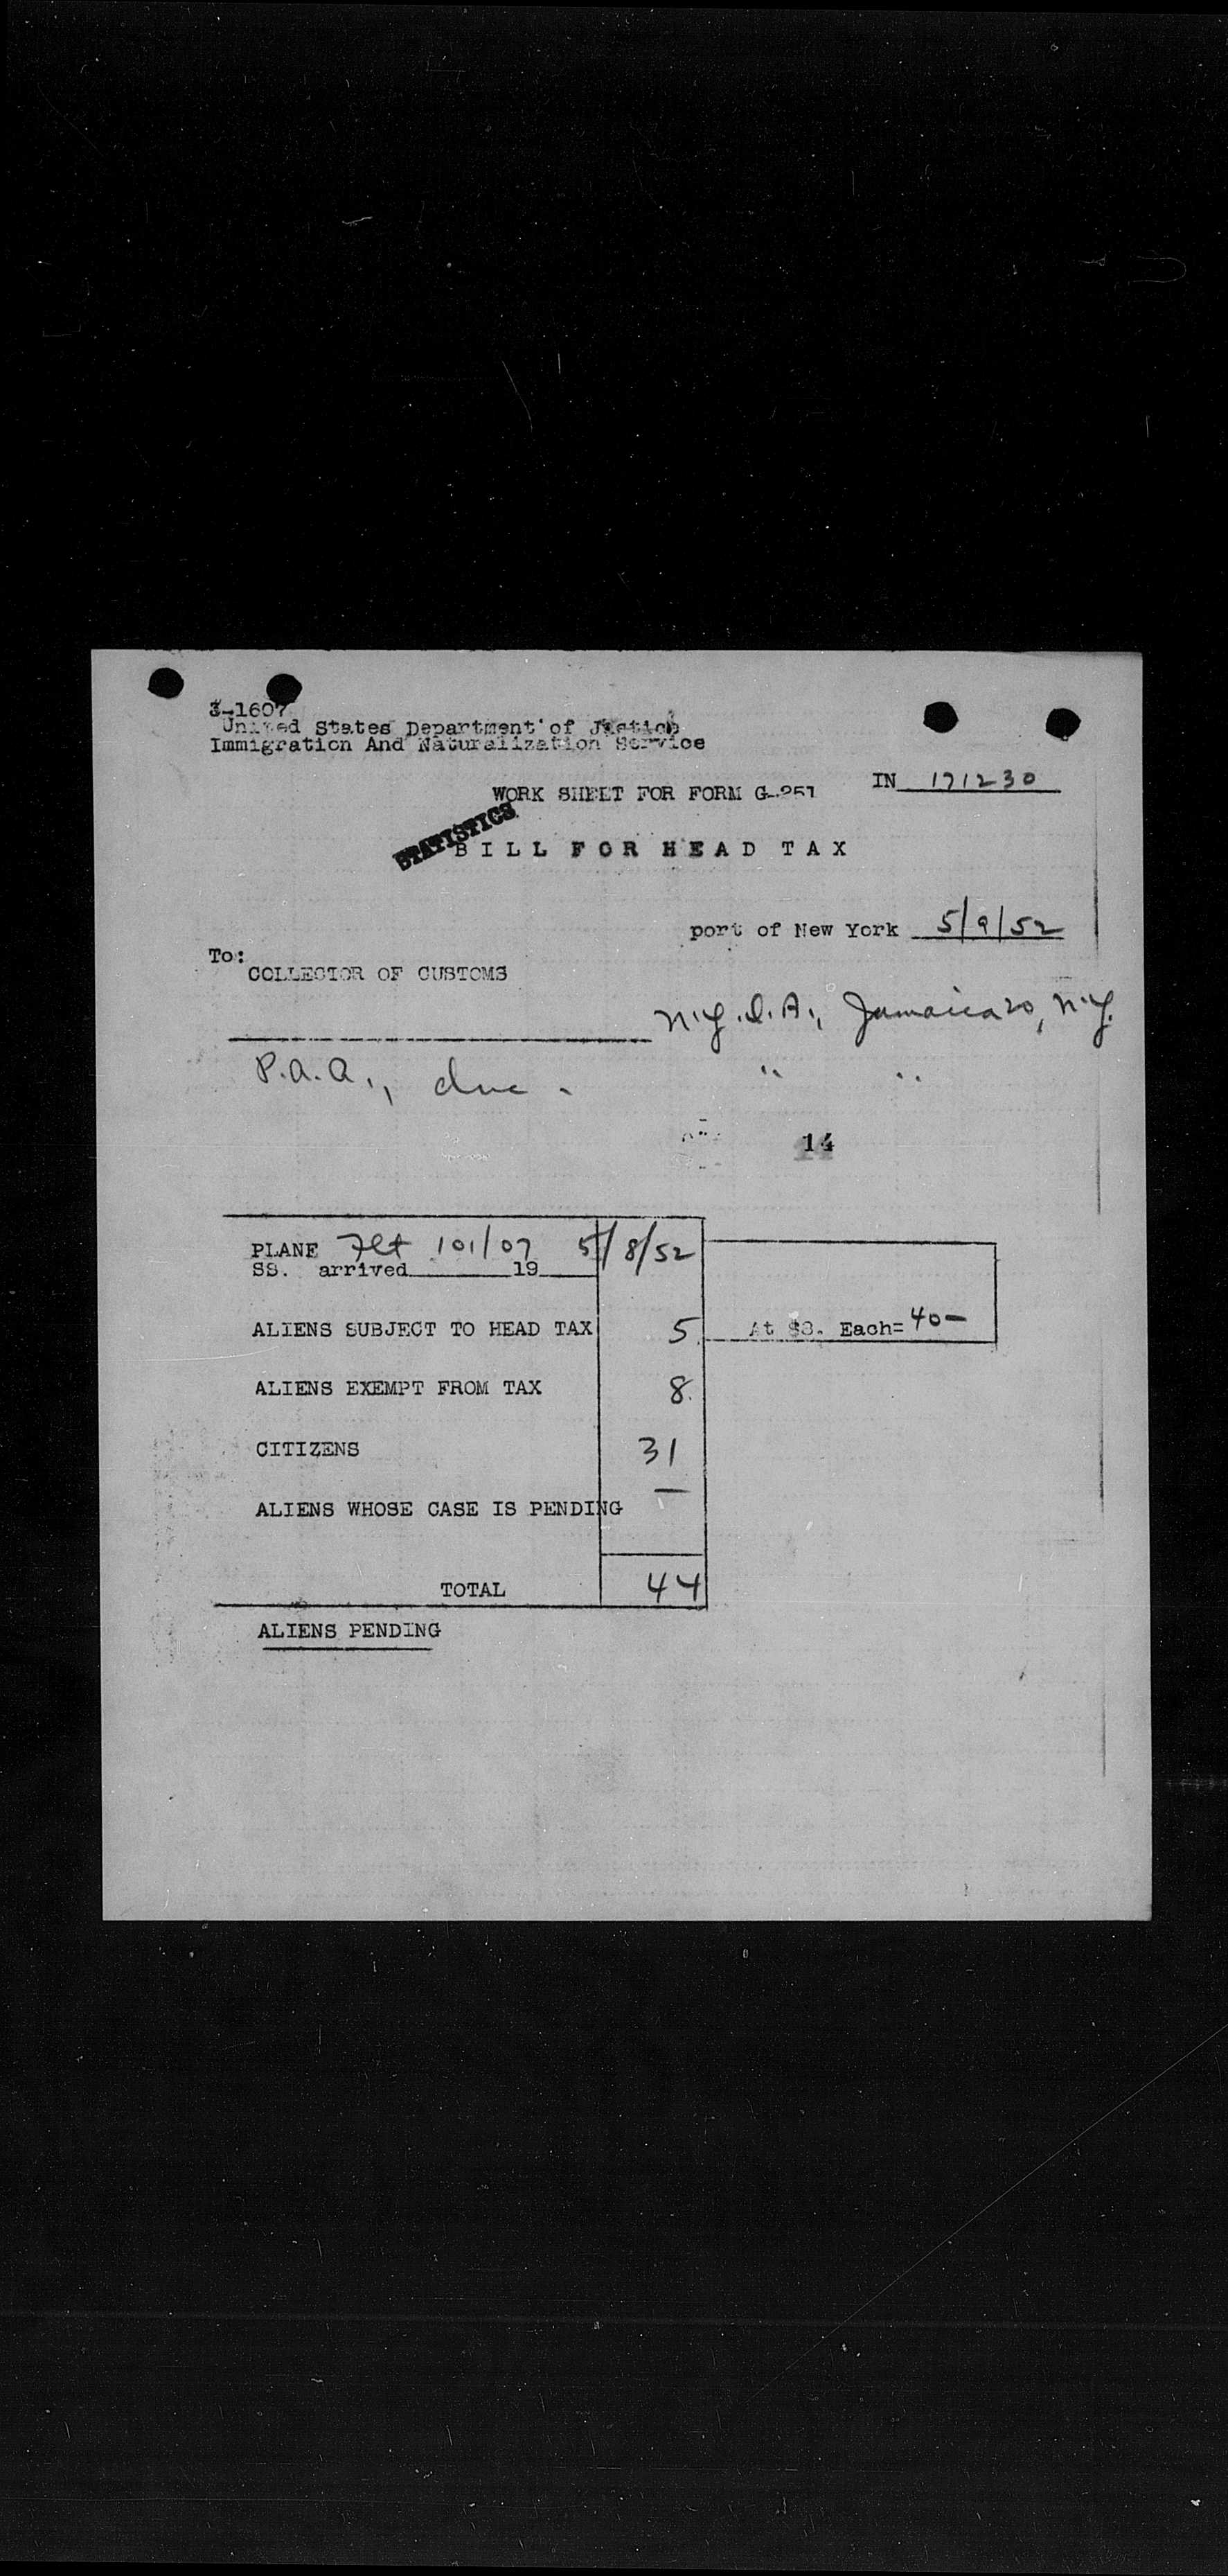 3-1607
United States Department of Justice
Immigration And Naturalization Service
IN 171230
WORK SHEET FOR FORM G-251
STATISTICS
BILL FOR HEAD TAX
port of New York 5/9/52
To:
COLLECTOR OF CUSTOMS
N.Y.I.A., Jamaica 20, N.Y.
P.A.A., Inc. " "
14
PLANE Flt 101/07 5/8/52
SS. arrived 19
ALIENS SUBJECT TO HEAD TAX 5 At $8. Each= 40-
ALIENS EXEMPT FROM TAX 8
CITIZENS 31
ALIENS WHOSE CASE IS PENDING -
TOTAL 44
ALIENS PENDING